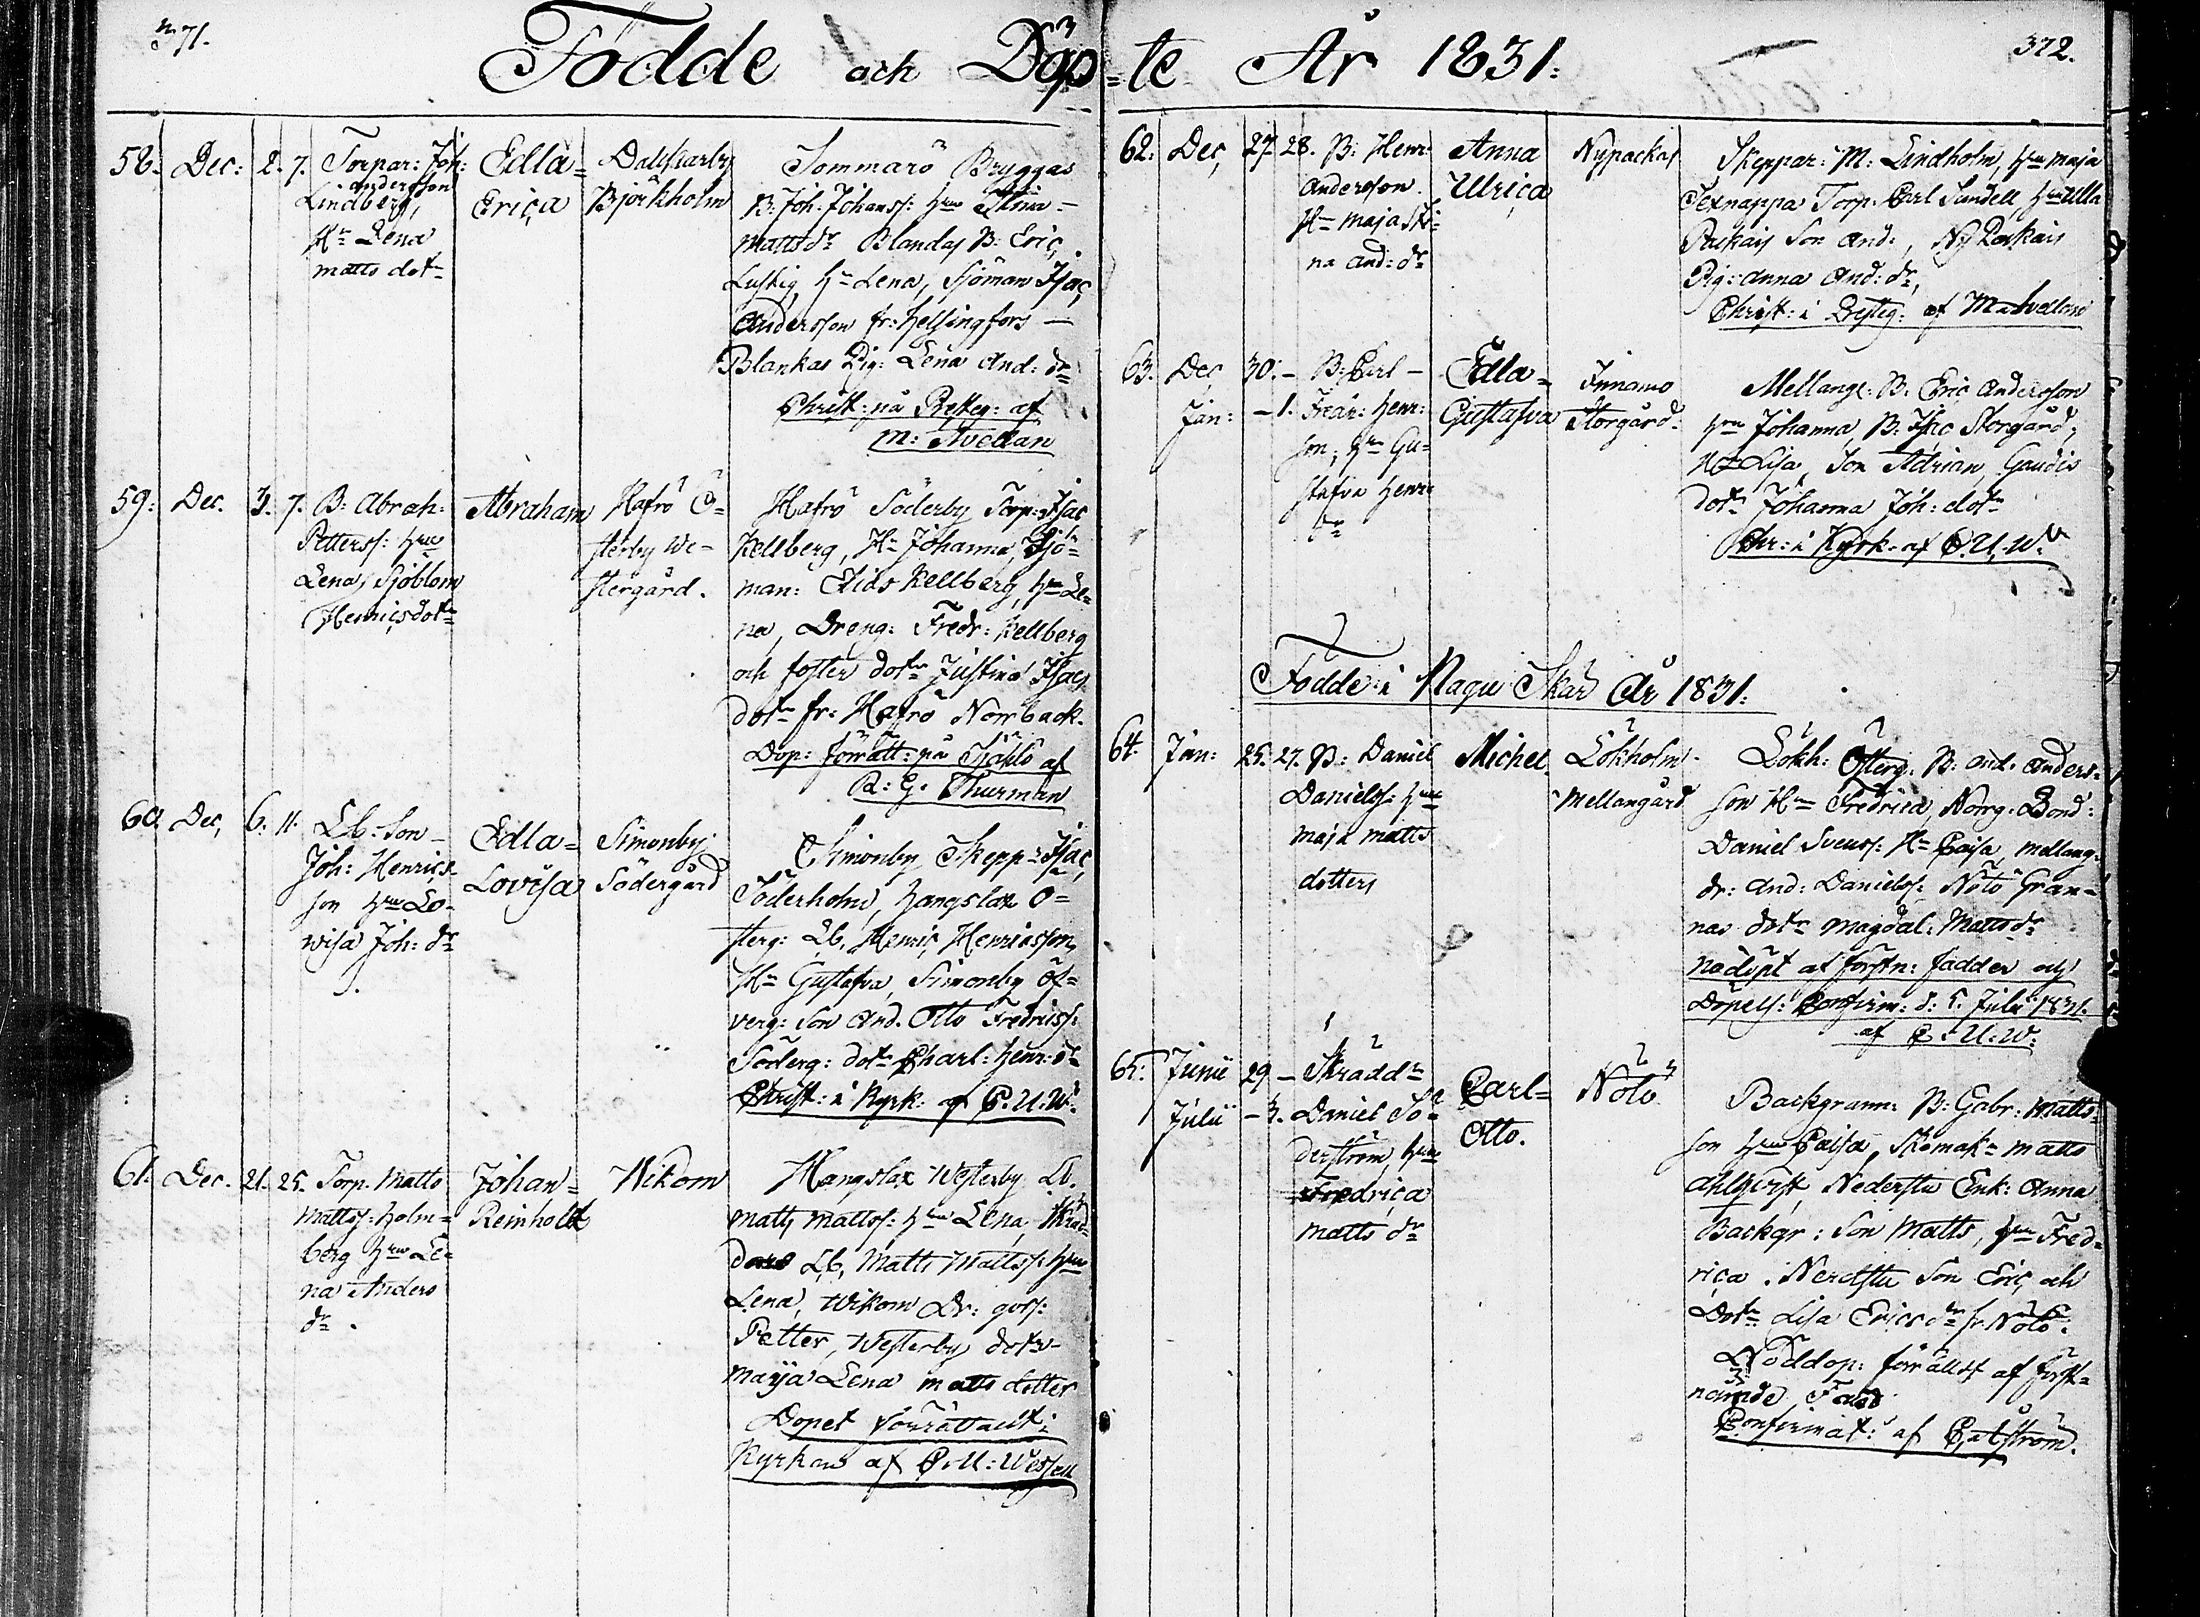 371.
Födde och Döp-te År 1831.
372.
58. Dec: 2. 7. Torpar: Joh:
Andersson
Lindberg,
Hu Lena
matts dotr
Edla=
Erica
Dalkarby
Björkholm
Sommarö Bryggas
B: Joh: Johanss: Hru Stina
mattsdr Blandas B: Eric
Lustig, Hu Lena, Sjöman Isac
Andersson fr: Helsingfors —
Blankas Pig: Lena And: dr
Christ: på Presteg: af
M: Avellan
59. Dec. 3. 7. B: Abrah:
Petterss: Hru
Lena Sjöblom
Henricsdotr
Abraham
Hafrö Ö=
sterby We-
stergård.
Hafrö Söderby Torp: Isac
Kellberg, Hu Johanna, Sjö=
man: Elias Kellberg, Hru Le=
na, Dreng: Fredr: Kellberg
och foster dotr Justina Isacs
dotr fr: Hafrö Norrback.
Dop: förrätt: på Själö af
P: G: Thurman
60. Dec, 6. 11. Lb: Son
Joh: Henrics
son Hru Lo-
wisa Joh: dr
Edla=
Lovisa
Simonby
Södergård
Simonby, Skepp: Isac
Söderholm, Hangslax Ö=
sterg: Lb, Henric Henricsson,
Hu Gustafva, Simonby Öf=
verg: Son And. Otto Fredricss:
Söderg: dotr Charl: Henr: dr
Christ: i Kyrk: af C. U. W.
61. Dec. 21. 25. Torp. Matts
Mattss: Holm=
berg Hru Le=
na Anders
dr.
Johan=
Reinhold
Wikom
Hangslax Westerby Lb.
Matts Mattss: Hru Lena, Skräd
dars Lb, Matts Mattss: Hru
Lena, Wikom Dr: goss:
Petter, Westerby dotr
Maija Lena matts dotter
Dopet förrättadt i
Kyrkan af C. U: Wessell
62. Dec, 27. 28. B: Henr
Andersson.
Hu Maja Sti=
na And: dr
Anna
Ulrica
Nypackas
Skeppar: M: Lindholm, Hru Maja
Torp. Carl Sundell, Hru Ulla
Packais Son And:, Ny Packais
Pig: Anna And: dr,
Christ: i Presteg: af M Avellan
63. Dec 30. — B: Carl —
Jan: — 1. Henr:
son, Hru Gu=
stafva Henr
dr
Edla=
Gustafva
Innamo
Storgård.
Mellang: B: Eric Andersson
Hru Johanna, B: Isac Storgård,
Hu Lisa, Son Adrian, Gaudis
dotr Johanna Joh: dotr
Chr: i Kyrk. af C. U. W.
Födde i Nagu Skär År 1831.
64. Jan: 25. 27. B: Daniel
Danielss: Hru
Maja matts
dotters
Michel
Lökholm
Mellangård
Lökh: Österg: B: And: Anders=
son Hu Fredrica, Norrg. Bond:
Daniel Svenss: Hu Caisa, Mellang:
dr: And: Danielss: Nötö Gran=
nas dotr Magdal: Mattsdr
nödöpt af förstn: fadder och
Dopels: Confirm: d: 5. Julii 1831.
af C. U. W.
65. Junii 29 — Skräddr
Julii — 3. Daniel Sö=
derström, Hru
Fredrica
Matts dr
Carl=
Otto.
Nötö
Backgrann: B: Gabr: Matts=
son Hru Caisa, Skomakr Matts
Ahlqvist Nedersta Enk: Anna
Backgr: Son Matts, Hru Fred=
rica. Nersta Son Eric och
Dotr Lisa Ericsdr fr Nötö:
Nöddop: förrättst af först=
nämde Fadd
Confirmat: af